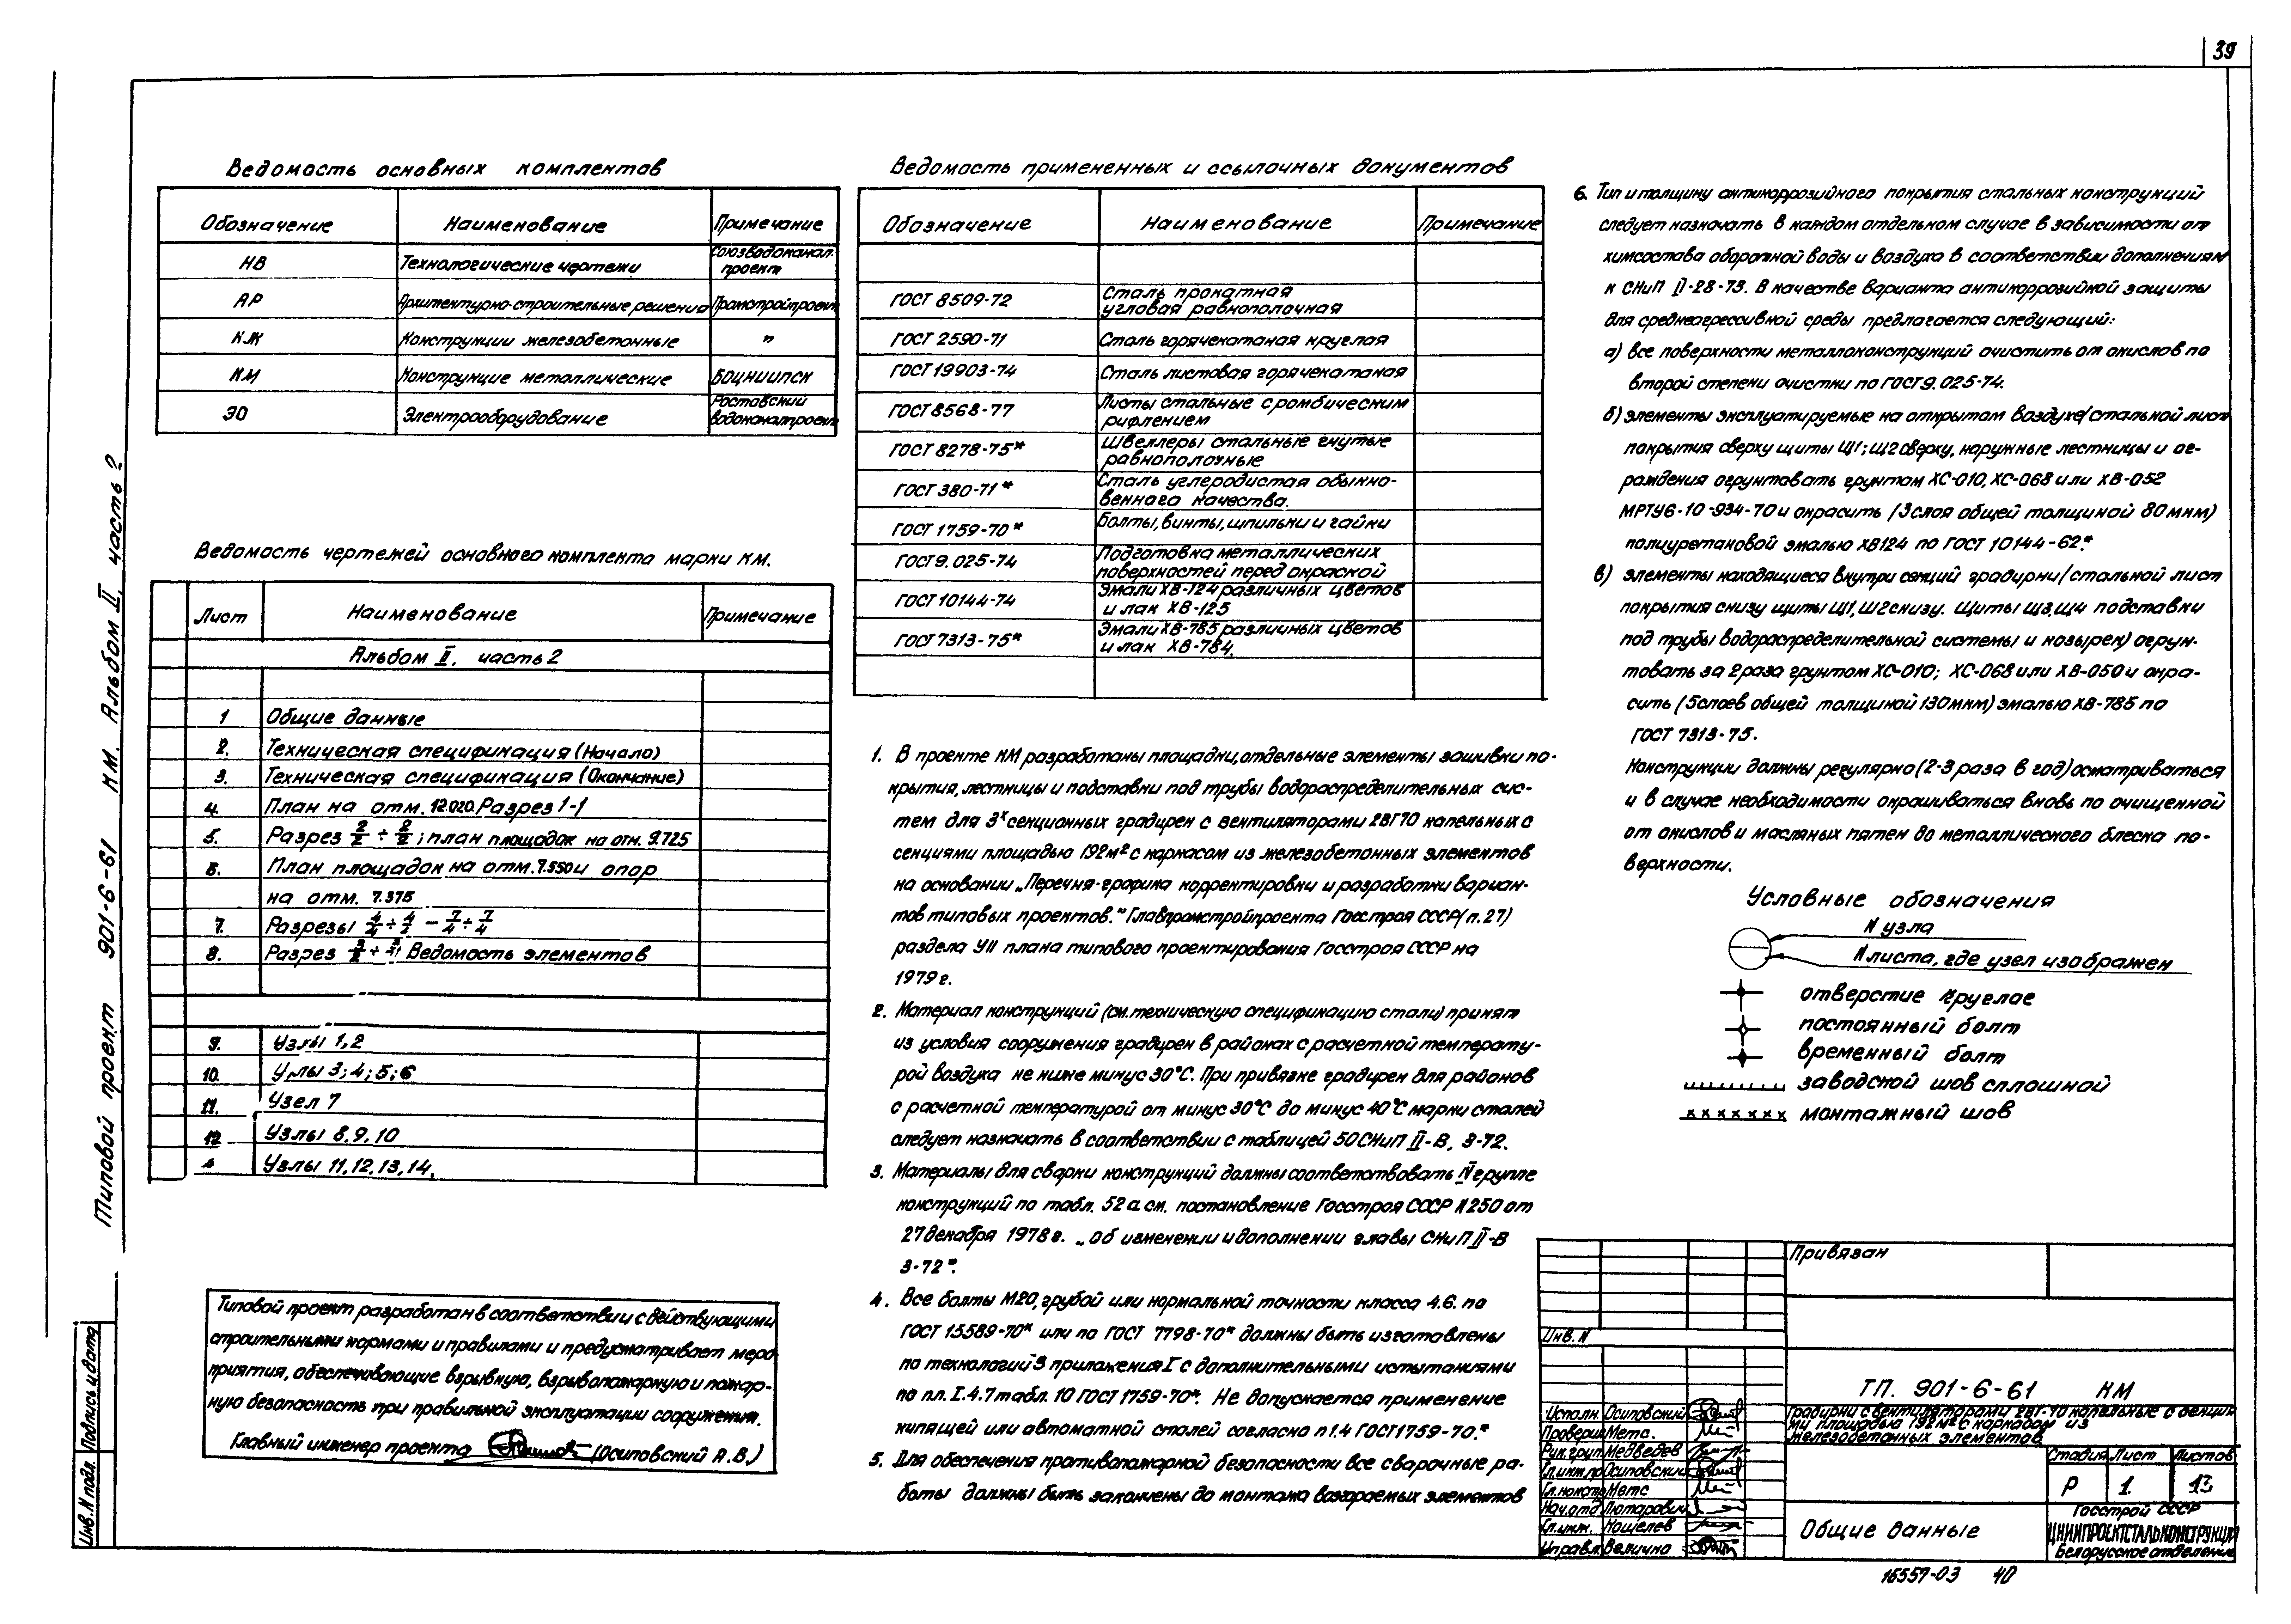 39
Ведомость основных комплектов
Обозначение Наименование Примечание
НВ Технологические чертежи Союзводоканалпроект
АР Архитектурно-строительные решения Промстройпроект
КЖ Конструкции железобетонные "
КМ Конструкции металлические БОЦНИИПСК
ЭО Электрооборудование Ростовский водоканалпроект
Ведомость чертежей основного комплекта марки КМ.
Лист Наименование Примечание
Альбом II, часть 2
1 Общие данные
2. Техническая спецификация (Начало)
3. Техническая спецификация (Окончание)
4. План на отм. 12.020. Разрез 1-1
5. Разрез 2/2 ÷ 2/2; план площадок на отм. 9.725
6. План площадок на отм. 7.550 и опор
на отм. 7.375
7. Разрезы 4/4 ÷ 4/4 – 7/4 ÷ 7/4
8. Разрез ÷ Ведомость элементов
9. Узлы 1, 2
10. Узлы 3; 4; 5; 6
11. Узел 7
12 Узлы 8, 9, 10
Узлы 11, 12, 13, 14.
Типовой проект разработан в соответствии с действующими
строительными нормами и правилами и предусматривает меро-
приятия, обеспечивающие взрывную, взрывопожарную и пожар-
ную безопасность при правильной эксплуатации сооружения.
Главный инженер проекта (Осиповский А.В.)
Ведомость примененных и ссылочных документов
Обозначение Наименование Примечание
ГОСТ 8509-72 Сталь прокатная
угловая равнополочная
ГОСТ 2590-71 Сталь горячекатаная круглая
ГОСТ 19903-74 Сталь листовая горячекатаная
ГОСТ 8568-77 Листы стальные с ромбическим
рифлением
ГОСТ 8278-75* Швеллеры стальные гнутые
равнополочные
ГОСТ 380-71* Сталь углеродистая обыкно-
венного качества.
ГОСТ 1759-70* Болты, винты, шпильки и гайки
ГОСТ 9.025-74 Подготовка металлических
поверхностей перед окраской
ГОСТ 10144-74 Эмали ХВ-124 различных цветов
и лак ХВ-125
ГОСТ 7313-75* Эмали ХВ-785 различных цветов
и лак ХВ-784.
1. В проекте КМ разработаны площадки, отдельные элементы зашивки по-
крытия, лестницы и подставки под трубы водораспределительных сис-
тем для 3х секционных градирен с вентиляторами 2ВГ70 капельных с
секциями площадью 192м² с каркасом из железобетонных элементов
на основании „Перечня-графика корректировки и разработки вариан-
тов типовых проектов." Главпромстройпроекта Госстроя СССР (п. 27)
раздела УII плана типового проектирования Госстроя СССР на
1979 г.
2. Материал конструкций (см. техническую спецификацию стали) принят
из условия сооружения градирен в районах с расчетной температу-
рой воздуха не ниже минус 30°С. При привязке градирен для районов
с расчетной температурой от минус 30°С до минус 40°С марки сталей
следует назначать в соответствии с таблицей 50 СНиП II-В, 3-72.
3. Материалы для сварки конструкций должны соответствовать IV группе
конструкций по табл. 52 а см. постановление Госстроя СССР N 250 от
27 декабря 1978 г. „Об изменении и дополнении главы СНиП II-В
3-72".
4. Все болты М20, грубой или нормальной точности класса 4.6. по
ГОСТ 15589-70* или по ГОСТ 7798-70* должны быть изготовлены
по технологий 3 приложения I с дополнительными испытаниями
по пл. I.4.7 табл. 10 ГОСТ 1759-70*. Не допускается применение
кипящей или автоматной сталей согласно п 1.4 ГОСТ 1759-70.*
5. Для обеспечения противопожарной безопасности все сварочные ра-
боты должны быть закончены до монтажа возгораемых элементов
6. Тип и толщину антикоррозийного покрытия стальных конструкций
следует назначать в каждом отдельном случае в зависимости от
химсостава оборотной воды и воздуха в соответствии дополнениям
к СНиП II-28-73. В качестве варианта антикоррозийной защиты
для среднеагрессивной среды предлагается следующий:
а) все поверхности металлоконструкций очистить от окислов по
второй степени очистки по ГОСТ 9.025-74.
б) элементы эксплуатируемые на открытом воздухе (стальной лист
покрытия сверху щиты Щ1; Щ2 сверху, наружные лестницы и ог-
раждения огрунтовать грунтом ХС-010, ХС-068 или ХВ-052
МРТУ6-10-934-70 и окрасить (3 слоя общей толщиной 80 мкм)
полиуретановой эмалью ХВ124 по ГОСТ 10144-62.*
в) элементы находящиеся внутри секций градирни (стальной лист
покрытия снизу щиты Щ1, Щ2 снизу. Щиты Щ3, Щ4 подставки
под трубы водораспределительной системы и козырек) огрун-
товать за 2 раза грунтом ХС-010; ХС-068 или ХВ-050 и окра-
сить (5 слоев общей толщиной 130 мкм) эмалью ХВ-785 по
ГОСТ 7313-75.
Конструкции должны регулярно (2-3 раза в год) осматриваться
и в случае необходимости окрашиваться вновь по очищенной
от окислов и масляных пятен до металлического блеска по-
верхности.
Условные обозначения
N узла
N листа, где узел изображен
отверстие круглое
постоянный болт
временный болт
заводской шов сплошной
монтажный шов
Привязан
Инв. N
ТП. 901-6-61 КМ
Градирни с вентиляторами 2ВГ-70 капельные с секция-
ми площадью 192 м² с каркасом из
железобетонных элементов
Исполн. Осиповский
Проверил Метс.
Рук. груп. Медведев
Гл. инж. пр Осиповский
Гл. констр Метс
Нач. отд. Лютарович
Гл. инж. Кошелев
Управл. Величко
Стадия Лист Листов
Р 1. 13
Общие данные
Госстрой СССР
ЦНИИПРОЕКТСТАЛЬКОНСТРУКЦИЯ
Белорусское отделение
15557-03 40
Типовой проект 901-6-61 КМ. Альбом II, часть 2
Инв. N подл. Подпись и дата